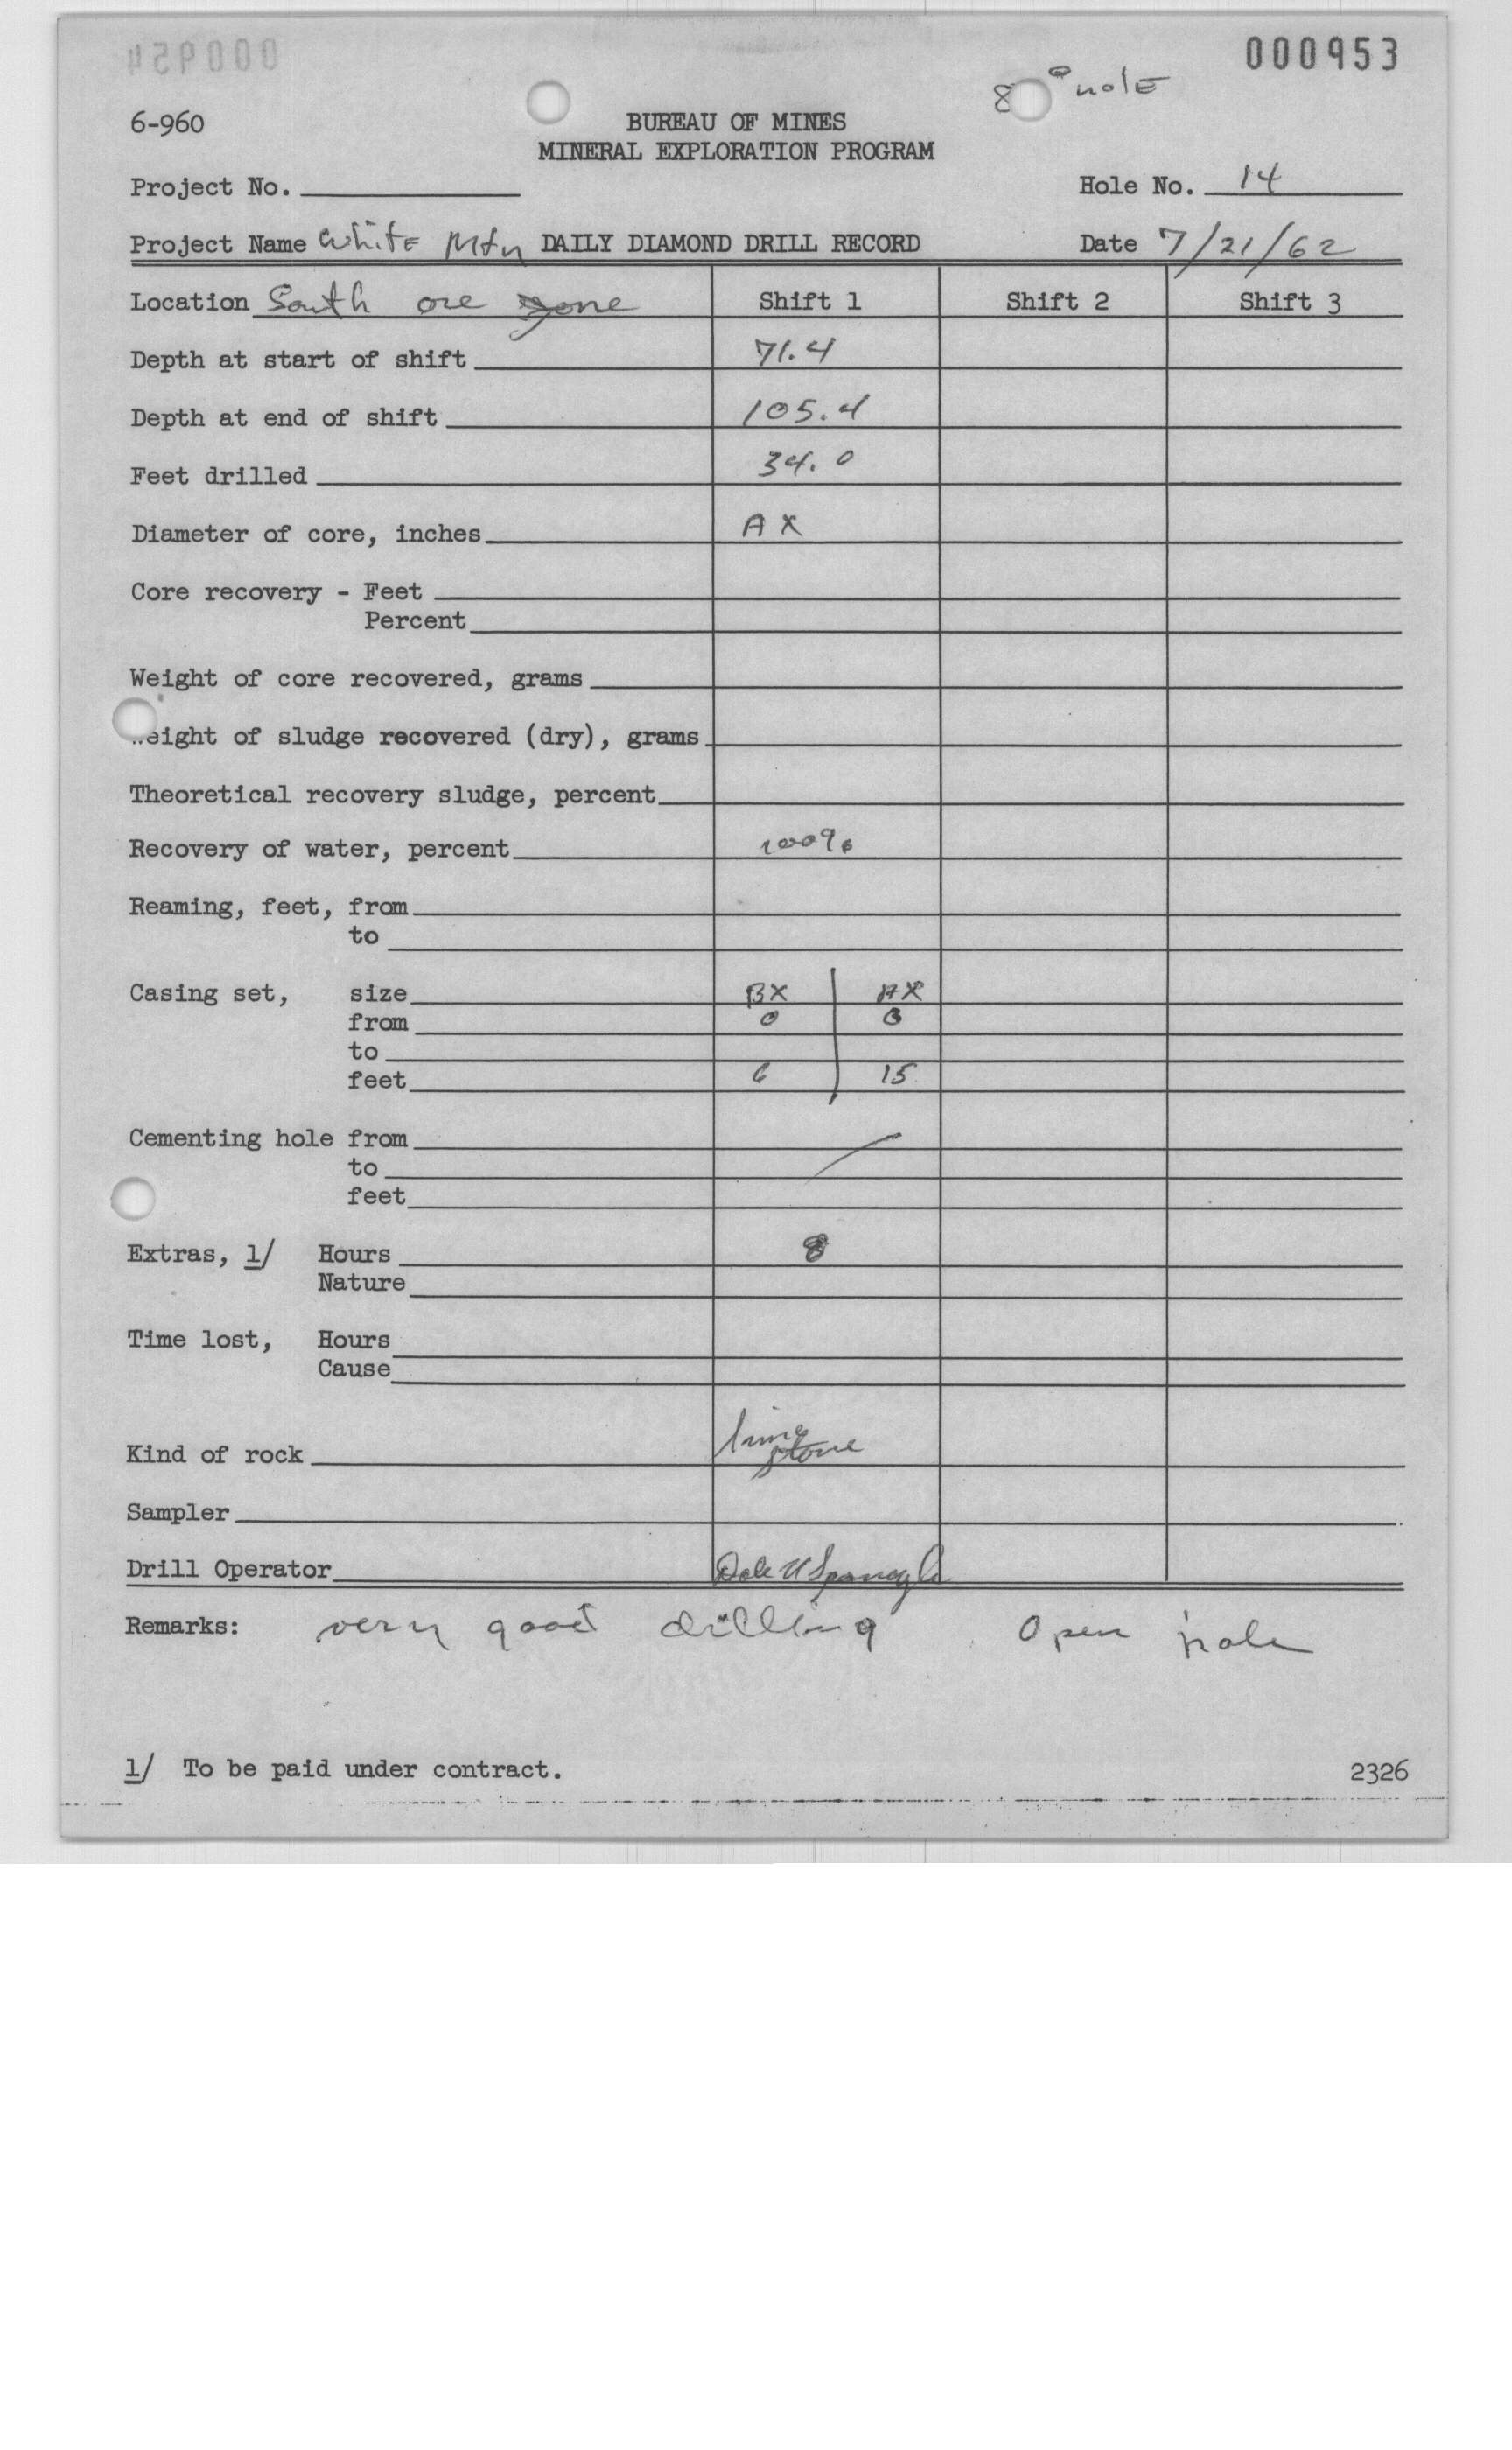 000953
8 ° hole
6-960
BUREAU OF MINES
MINERAL EXPLORATION PROGRAM
Project No. Hole No. 14
Project Name White Mtn DAILY DIAMOND DRILL RECORD Date 7/21/62
Location South ore zone Shift 1 Shift 2 Shift 3
Depth at start of shift 71.4
Depth at end of shift 105.4
Feet drilled 34.0
Diameter of core, inches AX
Core recovery - Feet
Percent
Weight of core recovered, grams
eight of sludge recovered (dry), grams
Theoretical recovery sludge, percent
Recovery of water, percent 100%
Reaming, feet, from
to
Casing set, size BX AX
from 0 0
to
feet 6 15
Cementing hole from
to
feet
Extras, 1/ Hours 8
Nature
Time lost, Hours
Cause
Kind of rock lime stone
Sampler
Drill Operator Dale
Remarks: very good drilling Open hole
1/ To be paid under contract.
2326